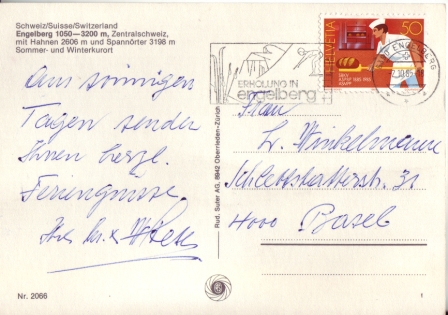 Schweiz/Suisse/Switzerland
Engelberg 1050—3200 m, Zentralschweiz,
mit Hahnen 2606 m und Spannörter 3198 m
Sommer- und Winterkurort
Aus sonnigen
Tagen sendet
Ihnen herzl.
Feriengrüsse
Ihre
Nr. 2066
Rud. Suter AG, 8942 Oberrieden-Zürich
ERHOLUNG IN
engelberg
HELVETIA
50
ENGELBERG
Frau
L. Winkelmann
Schlettstatterstr. 31
4000 Basel
1